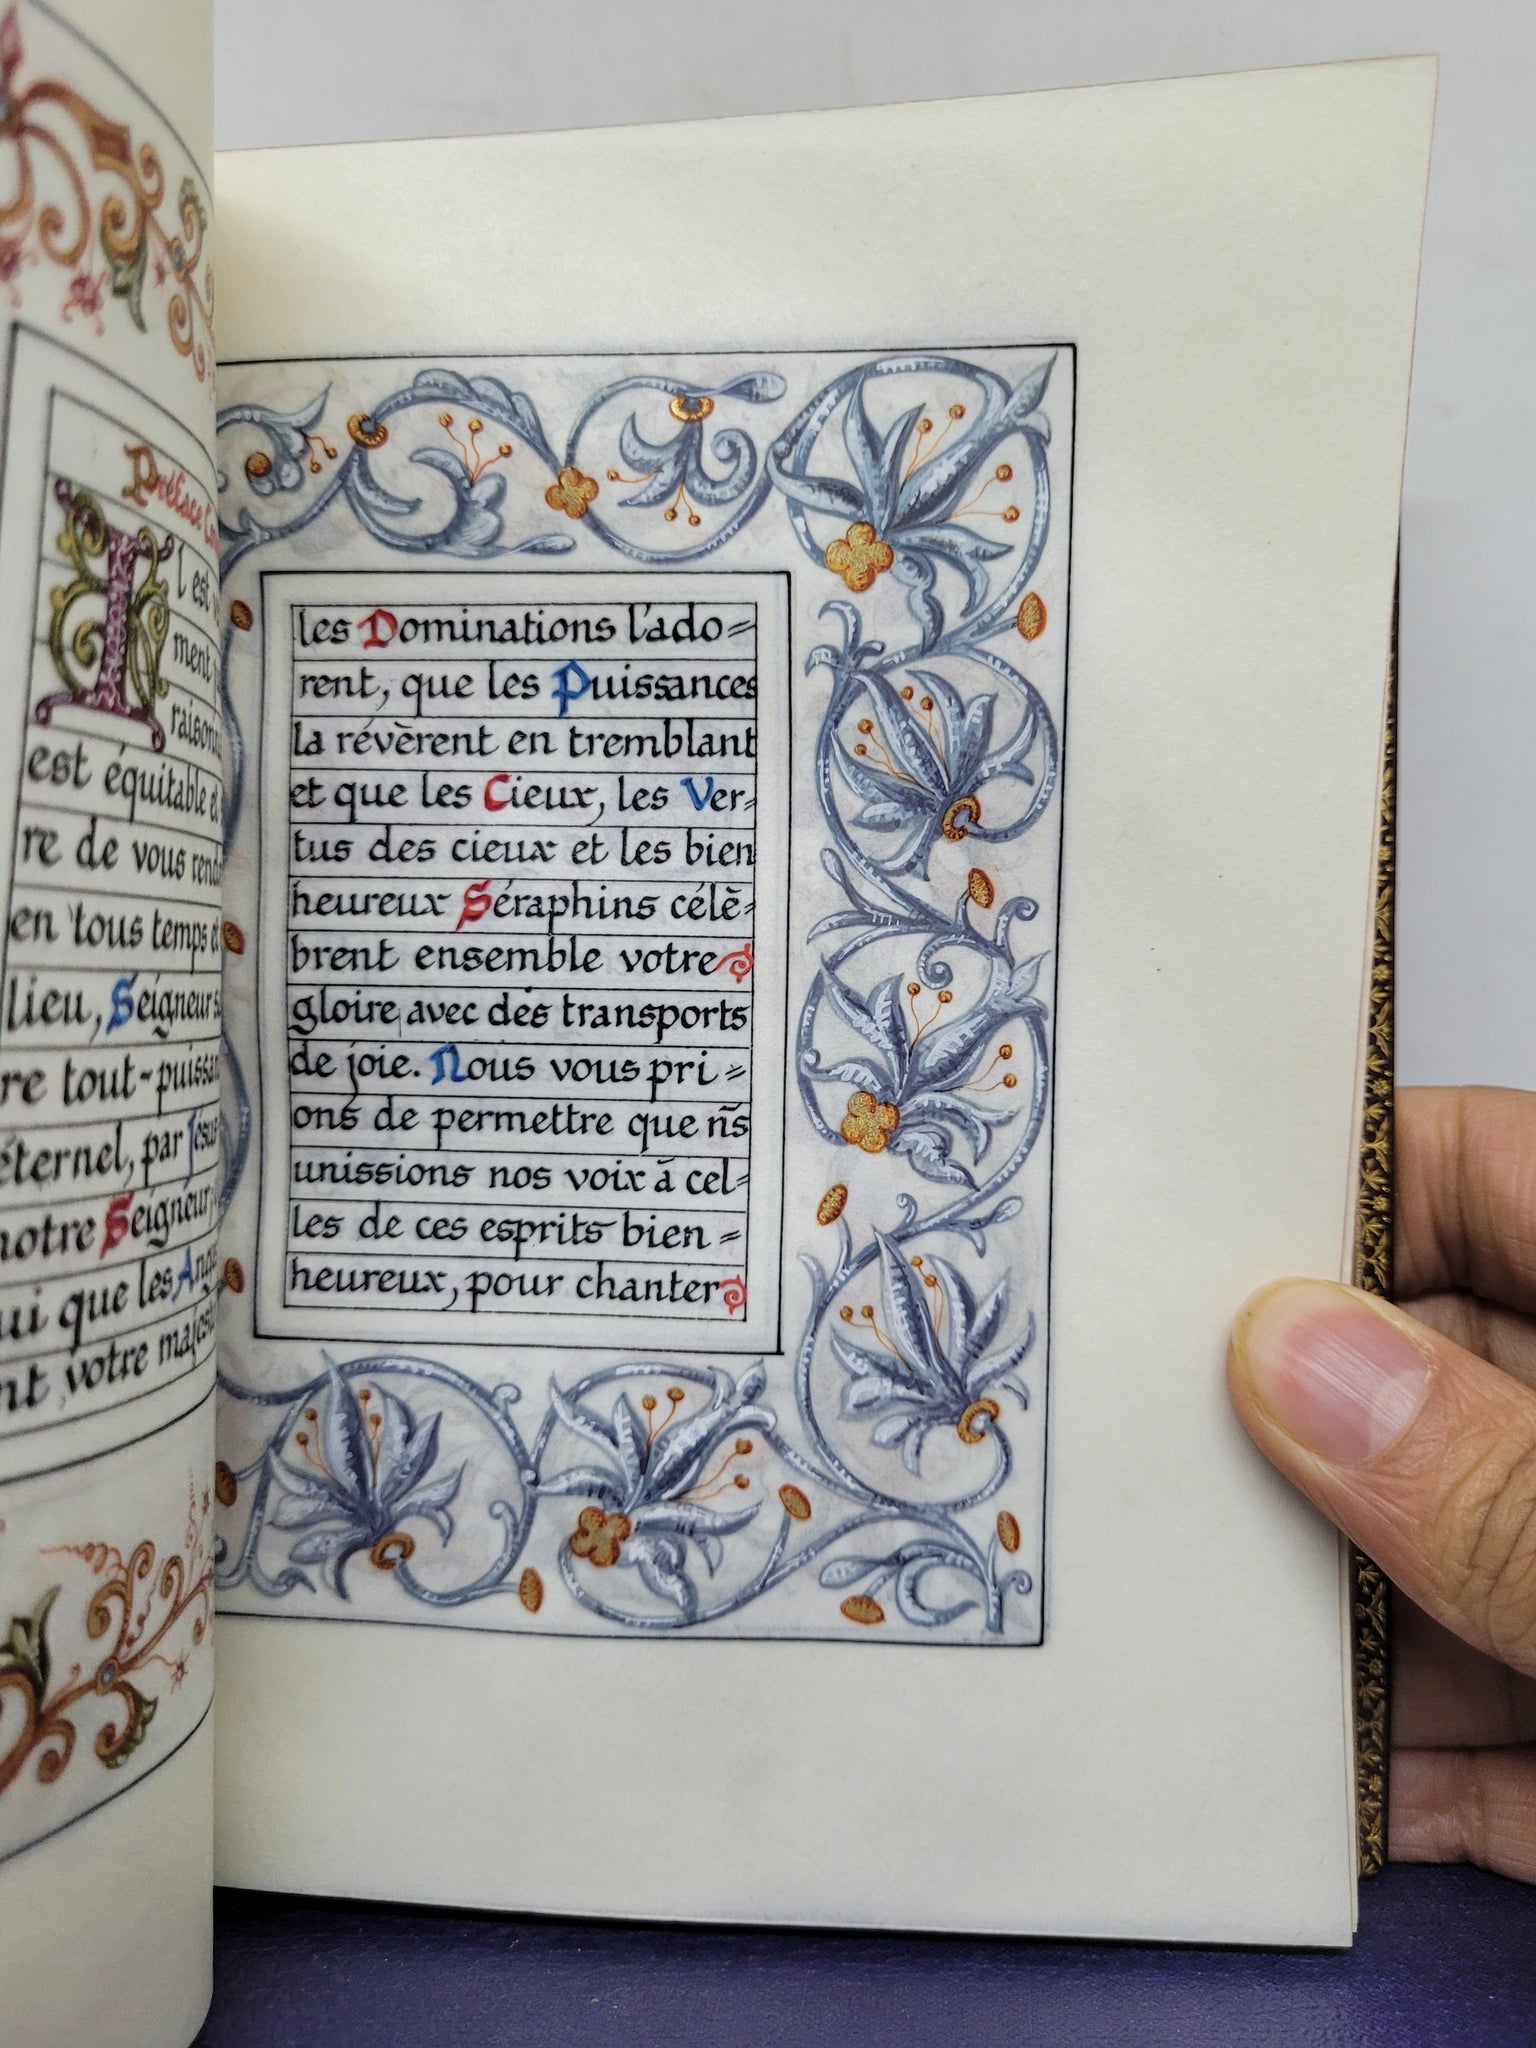 l est
ment
est équitable et
re de vous rend
en tous temps et
lieu, Seigneur
re tout-puissan
éternel, par Jésus
notre Seigneur,
ui que les Ang
nt votre majest
les Dominations l'ado=
rent, que les Puissances
la révèrent en tremblant
et que les Cieux, les Ver=
tus des cieux et les bien
heureux Séraphins célè=
brent ensemble votre
gloire avec des transports
de joie. Nous vous pri=
ons de permettre que ñs
unissions nos voix à cel=
les de ces esprits bien=
heureux, pour chanter